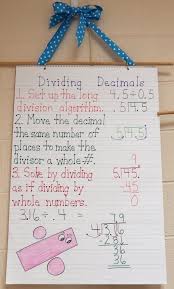 Dividing Decimals
1. Set up the long
division algorithm.
4.5 ÷ 0.5
.5)4.5
2. Move the decimal
the same number of
places to make the
divisor a whole #.
.5)4.5
3. Solve by dividing
as if dividing by
whole numbers.
9.
5)45.
-45
0
3.16 ÷ .4 =
7.9
4)31.6
-28
36
36